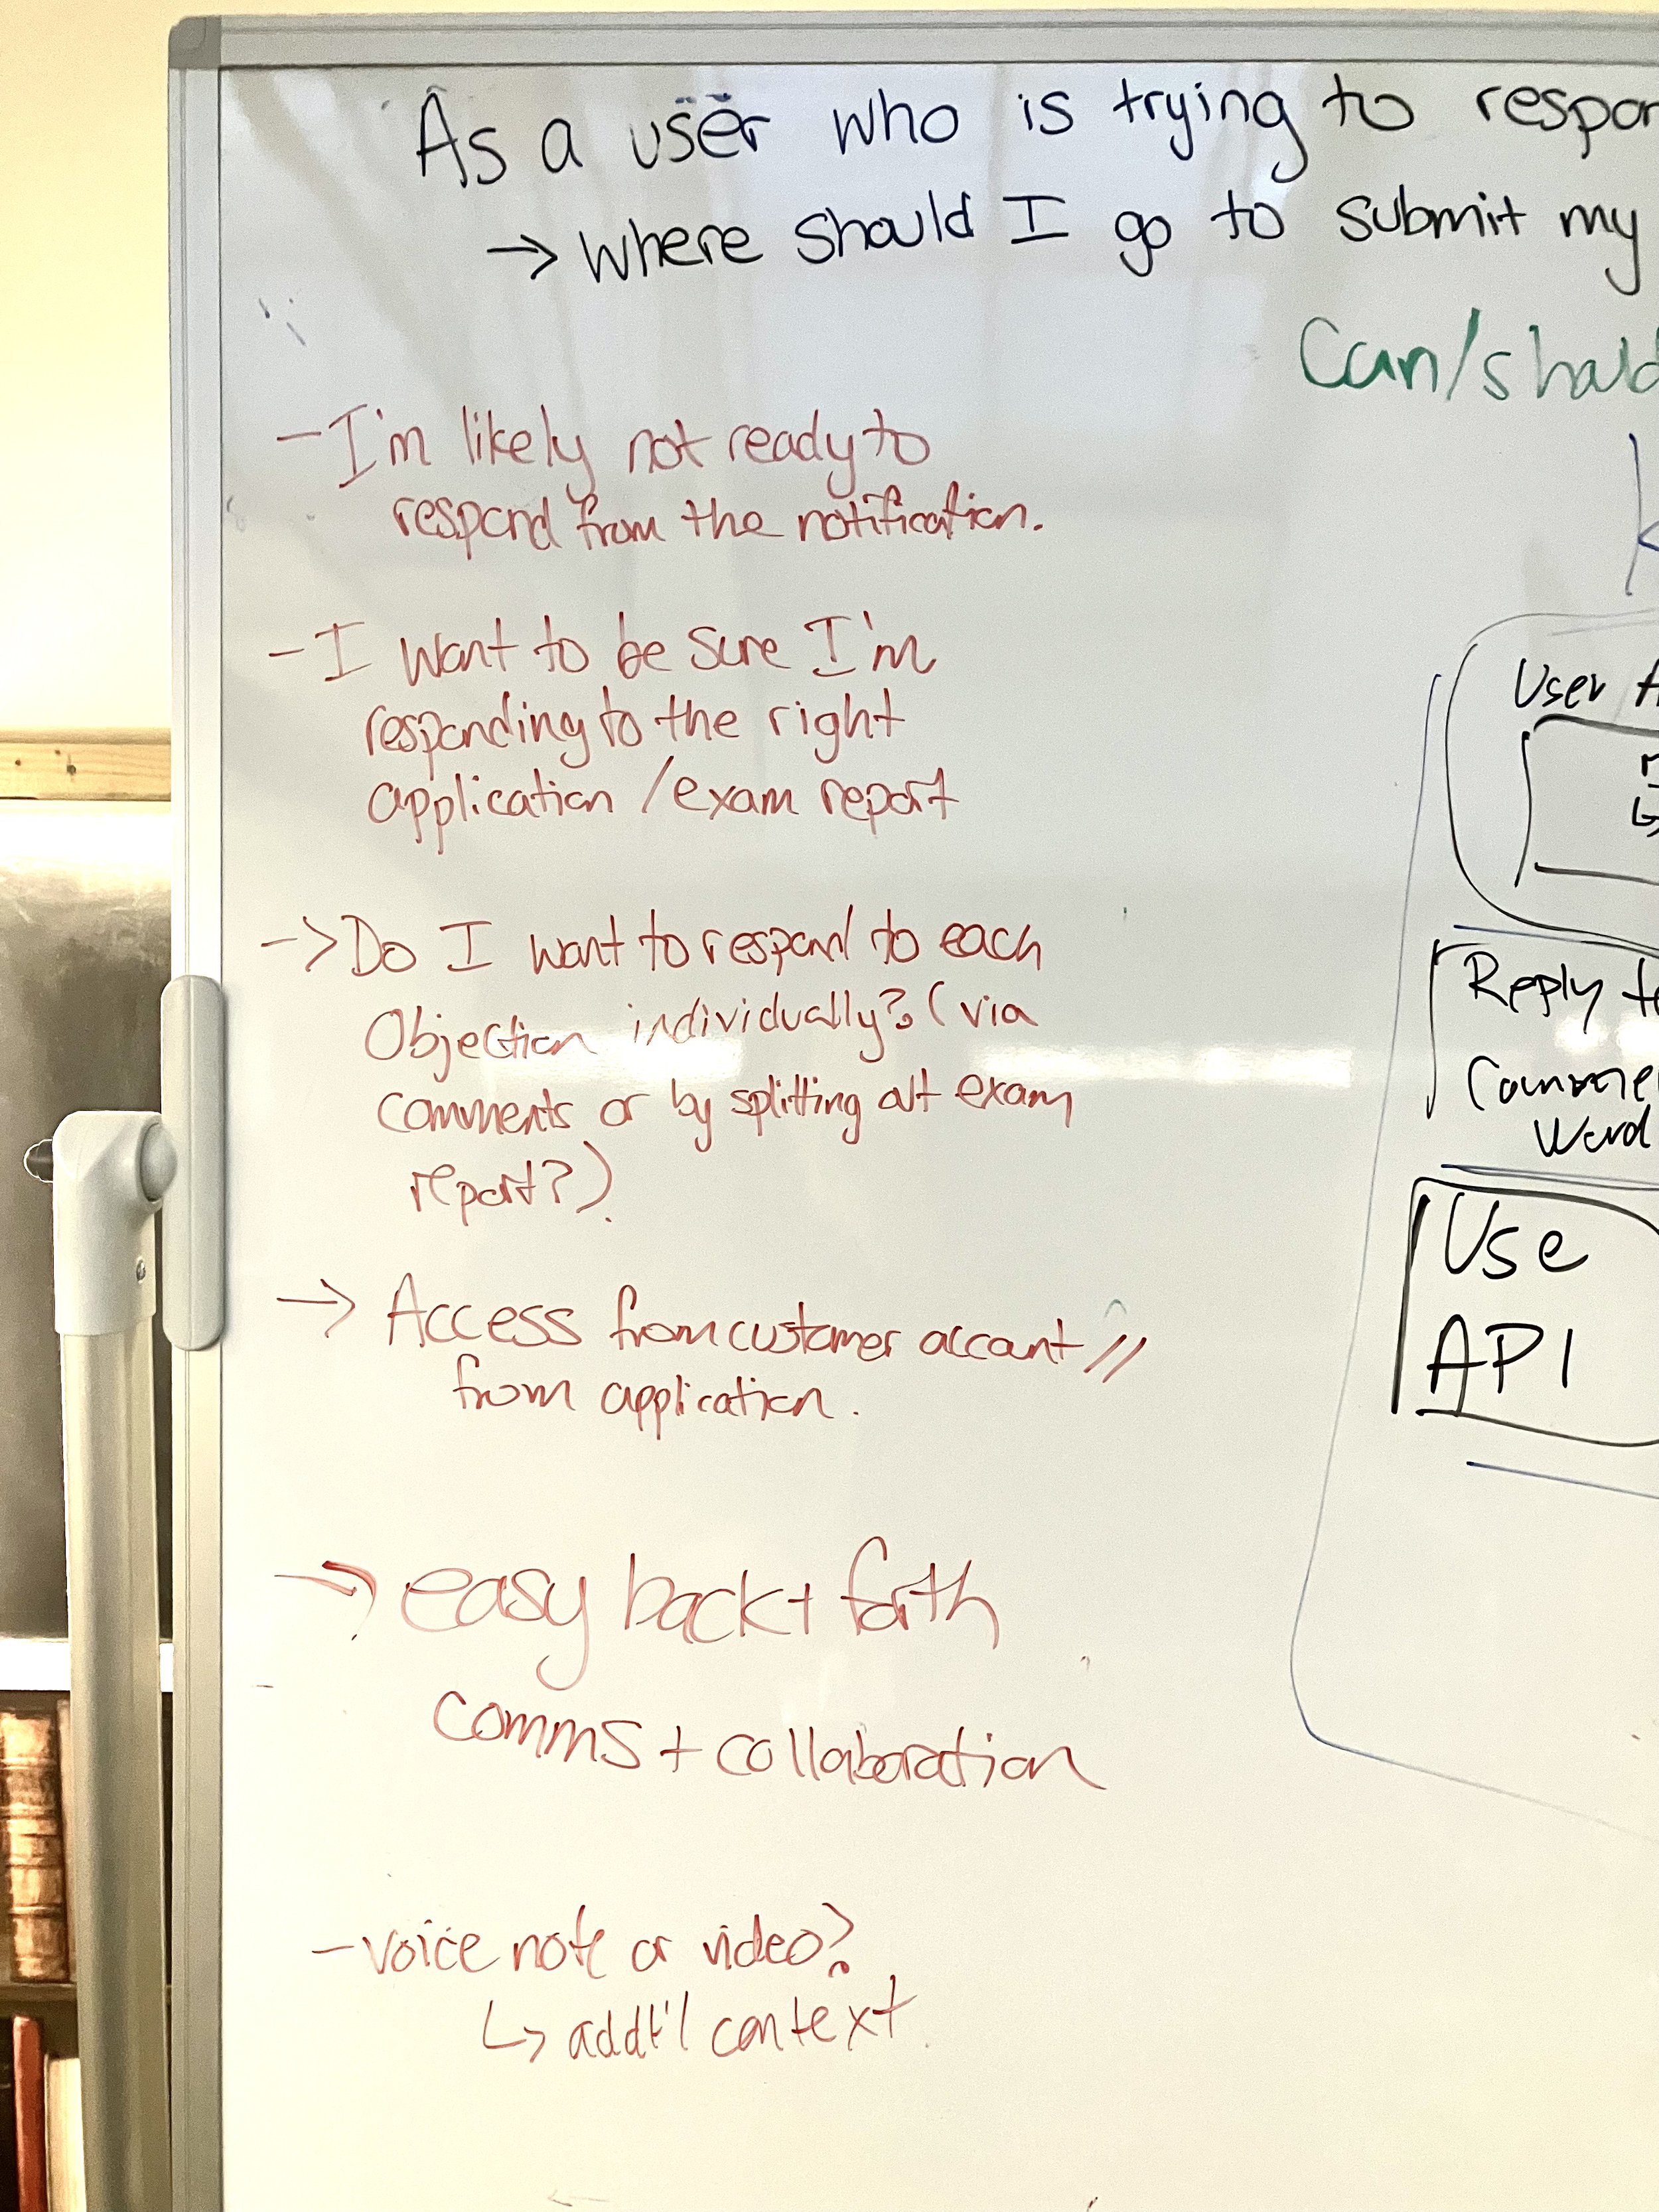 As a user who is trying to respon
→ where should I go to submit my
Can/should
- I'm likely not ready to
respond from the notification.
- I want to be sure I'm
responding to the right
application / exam report
-> Do I want to respond to each
Objection individually? (via
comments or by splitting out exam
report?).
→ Access from customer account //
from application.
→ easy back + forth
comms + collaboration
- voice note or video?
↳ addt'l context.
User A
Reply to
Comme
Word
Use
API